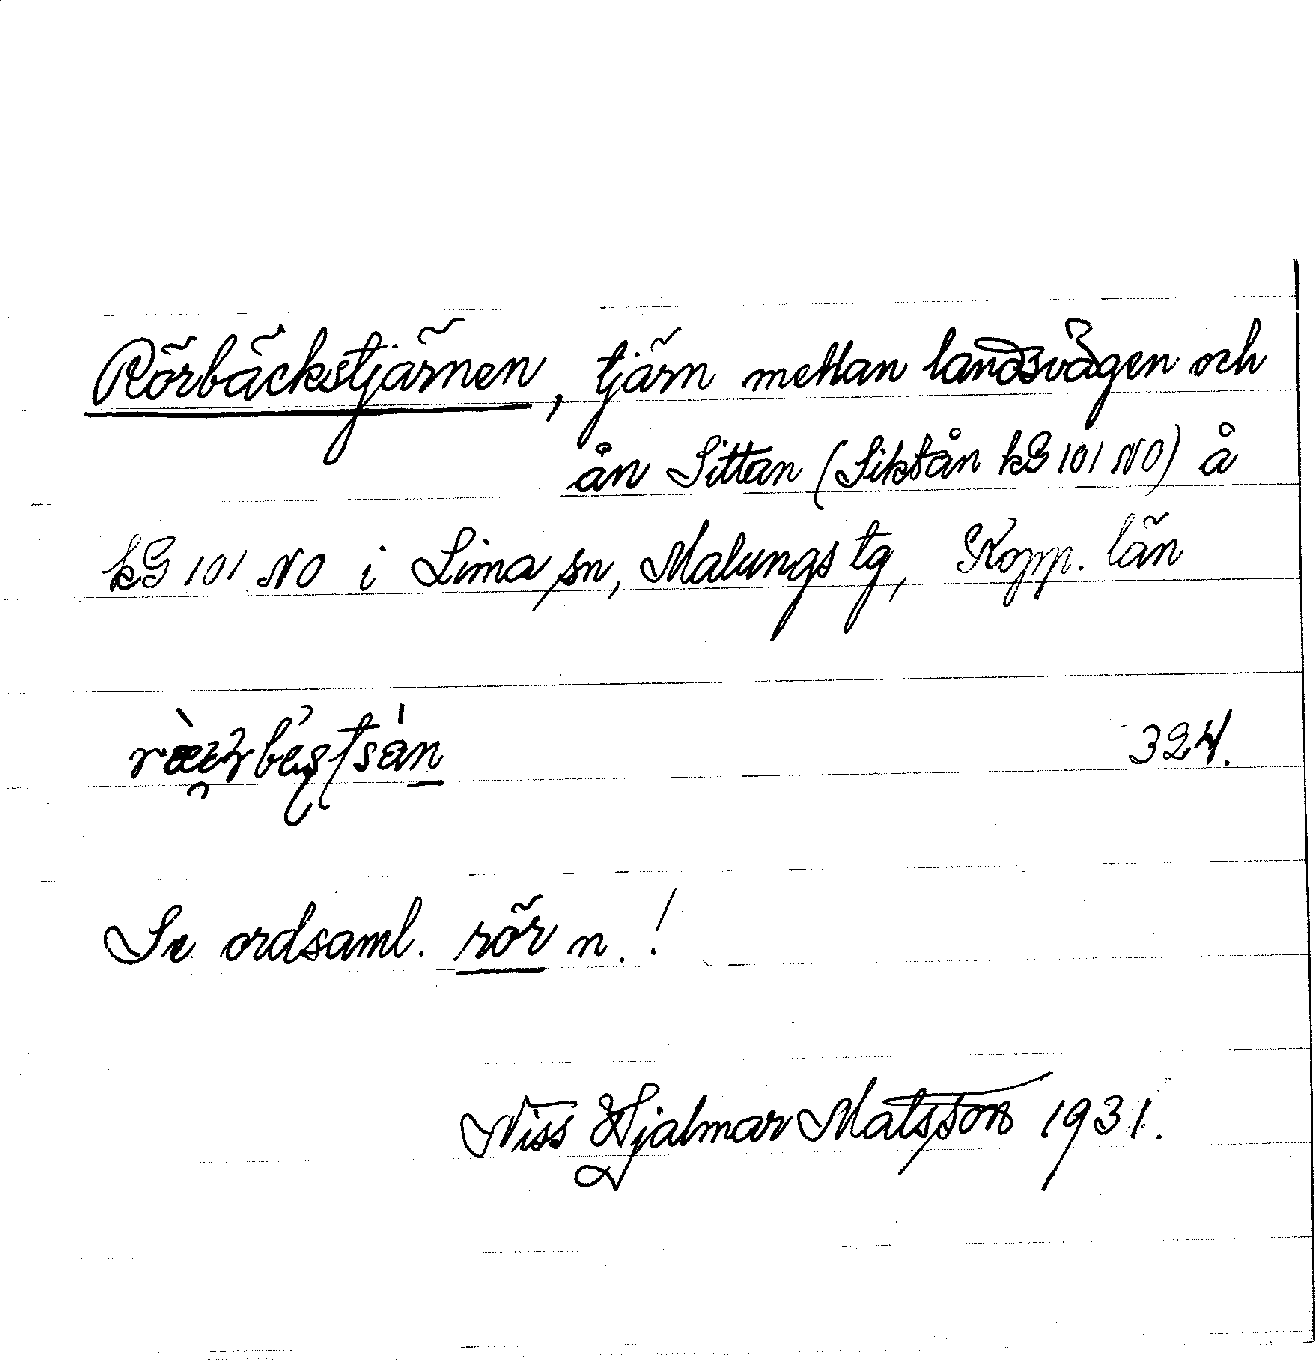 Rörbäckstjärnen, tjärn mellan landsvägen och
ån Sittan (Siktån kG 101 NO) å
kG 101 NO i Lima sn, Malungs tg, Kopp. län
324.
Se ordsaml. rör n.!
Niss Hjalmar Matsson 1931.